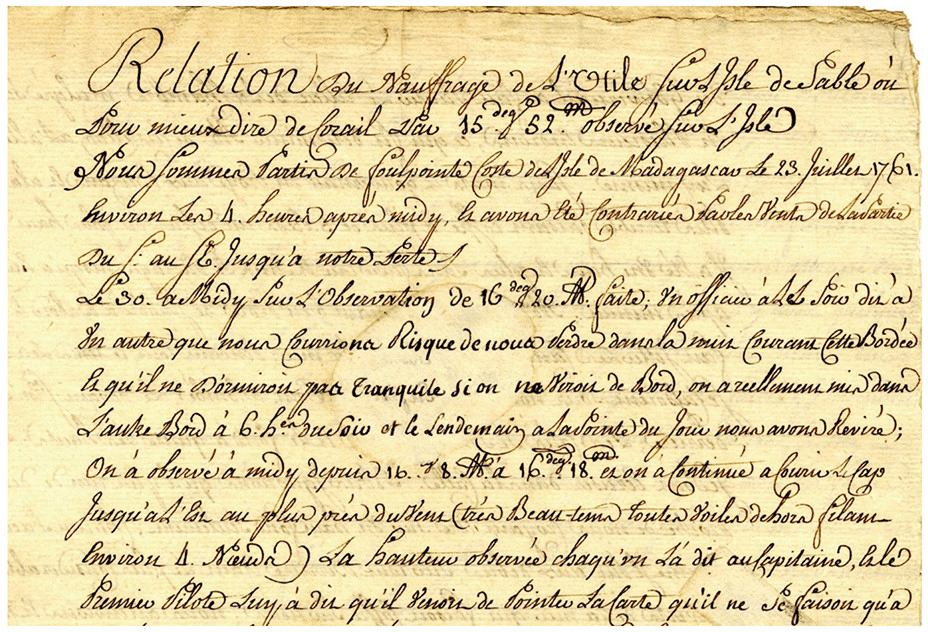 Relation Du Nauffrage de L'Utile sur L'Isle de Sable où
Pour mieux dire de Corail Par 15 deg.s 52 M. observé sur L'Isle
Nous sommes Partis de foulpointe Coste de L'Isle de Madagascar Le 23. Juillet 1761.
Environ Les 4. heures aprés midy, Et avons Eté Contrariés Par les Vents de La Partie
Du S. au SE. Jusqu'à notre Perte
Le 30. a Midy sur L'Observation de 16 deg. 20. M. faite; Un officier à Lé Soir dit a
Un autre que nous Courrions Risque de nous Perdre dans la nuit Courant Cette Bordée
Et qu'il ne Dormiroit pas tranquile si on ne Viroit de Bord, on a réellement mis dans
L'autre Bord à 6. h.es du Soir et le Lendemain a La Pointe du Jour nous avons Reviré;
On à observé à midy depuis 16. 8. M. à 16 deg. 18. m. et on à Continué a Courir Le Cap
Jusqu'a L'Est au plus prés du Vent (trés Beau tems toutes Voiles dehors filant
Environ 4. Nœuds) La hauteur observée chaqu'un L'à dit au Capitaine, Et le
Premier Pilote Luy à dit qu'il Venoit de Pointer La Carte qu'il ne Se faisoit qu'a